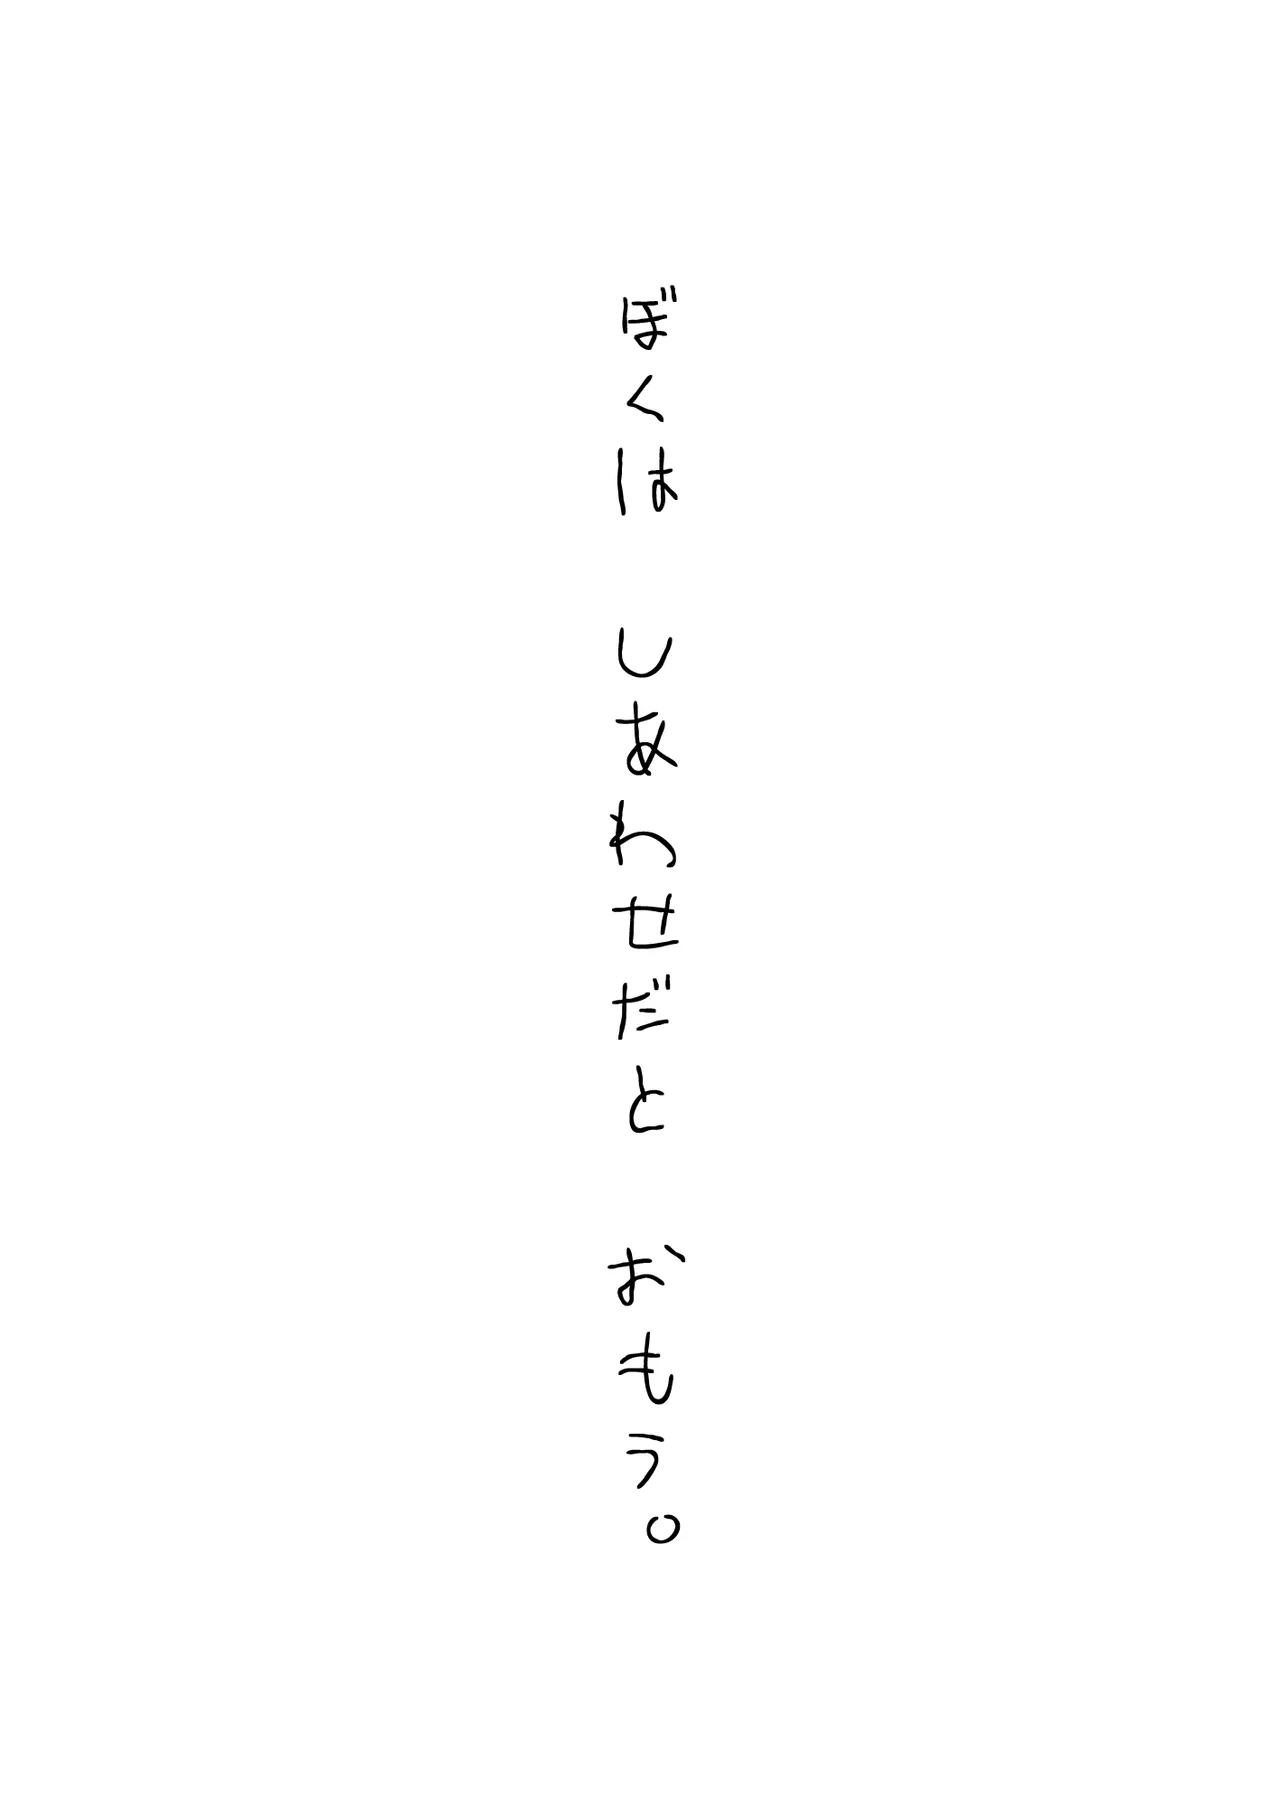 ぼくは　しあわせだと　おもう。